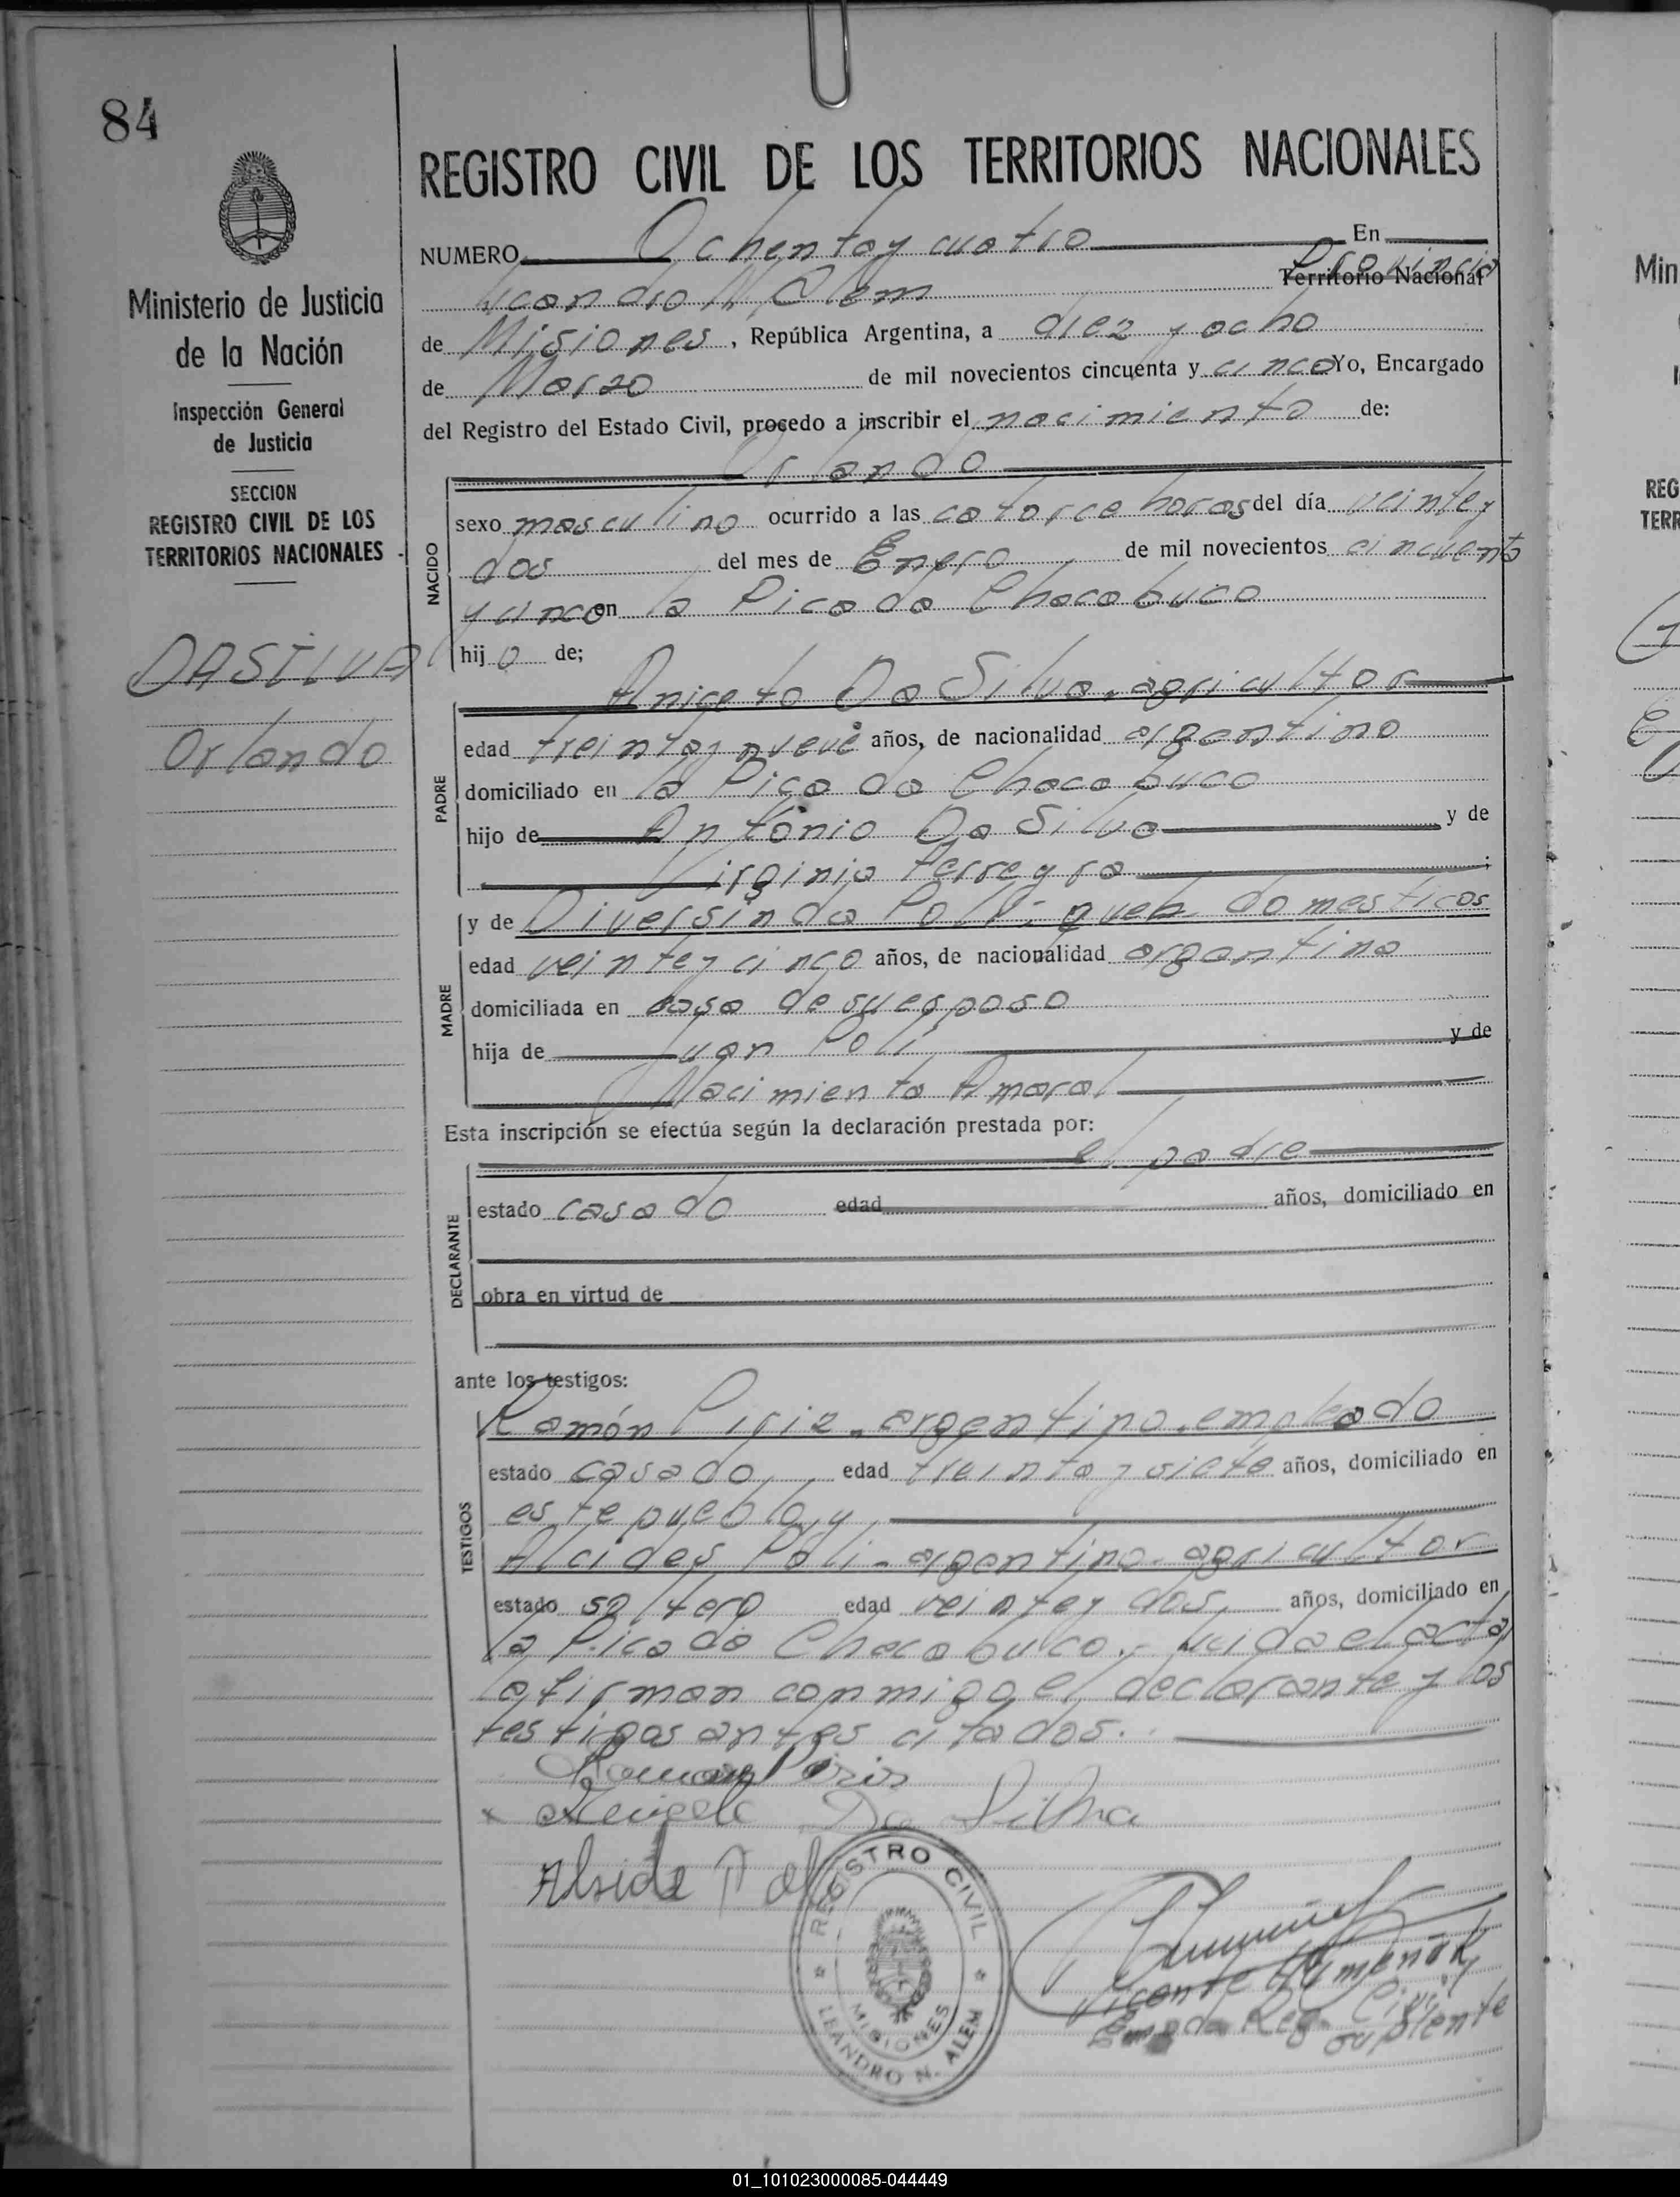 84
Ministerio de Justicia
de la Nación
Inspección General
de Justicia
SECCION
REGISTRO CIVIL DE LOS
TERRITORIOS NACIONALES
DASILVA
Orlando
REGISTRO CIVIL DE LOS TERRITORIOS NACIONALES
NUMERO Ochentay cuatro En
Leandro N Alem Provincia Territorio Nacional
de Misiones, República Argentina, a diez y ocho
de Marzo de mil novecientos cincuenta y cinco Yo, Encargado
del Registro del Estado Civil, procedo a inscribir el nacimiento de:
Orlando
NACIDO
sexo masculino ocurrido a las catorce horas del día veintey
dos del mes de Enero de mil novecientos cincuenta
y cinco en la Picada Chacabuco
hijo de;
PADRE
Aniceto Da Silva. agricultor
edad treintay nueve años, de nacionalidad argentino
domiciliado en la Picada Chacabuco
hijo de Antonio Da Silva y de
Virginia Ferreyra ;
MADRE
y de Diversinda Poli- queh. domesticos
edad veintey cinco años, de nacionalidad argentina
domiciliada en casa de su esposo
hija de Juan Poli y de
Nacimienta Amaral
Esta inscripción se efectúa según la declaración prestada por:
el padre
DECLARANTE
estado casado edad años, domiciliado en
obra en virtud de
ante los testigos:
TESTIGOS
Ramón Piriz. argentino. empleado
estado casado, edad treintay siete años, domiciliado en
este pueblo, y
Alcides Poli- argentino- agricultor
estado soltero edad veintey dos, años, domiciliado en
la Picada Chacabuco.- Leida el acta
la firman conmigo el declarante y los
testigos antes citados.-
Ramon Piris
x Da Silva
Alside Poli
REGISTRO CIVIL
MISIONES
LEANDRO N. ALEM
Vicente
Reg. Civil
suplente
Min
REG
TERR
01_101023000085-044449